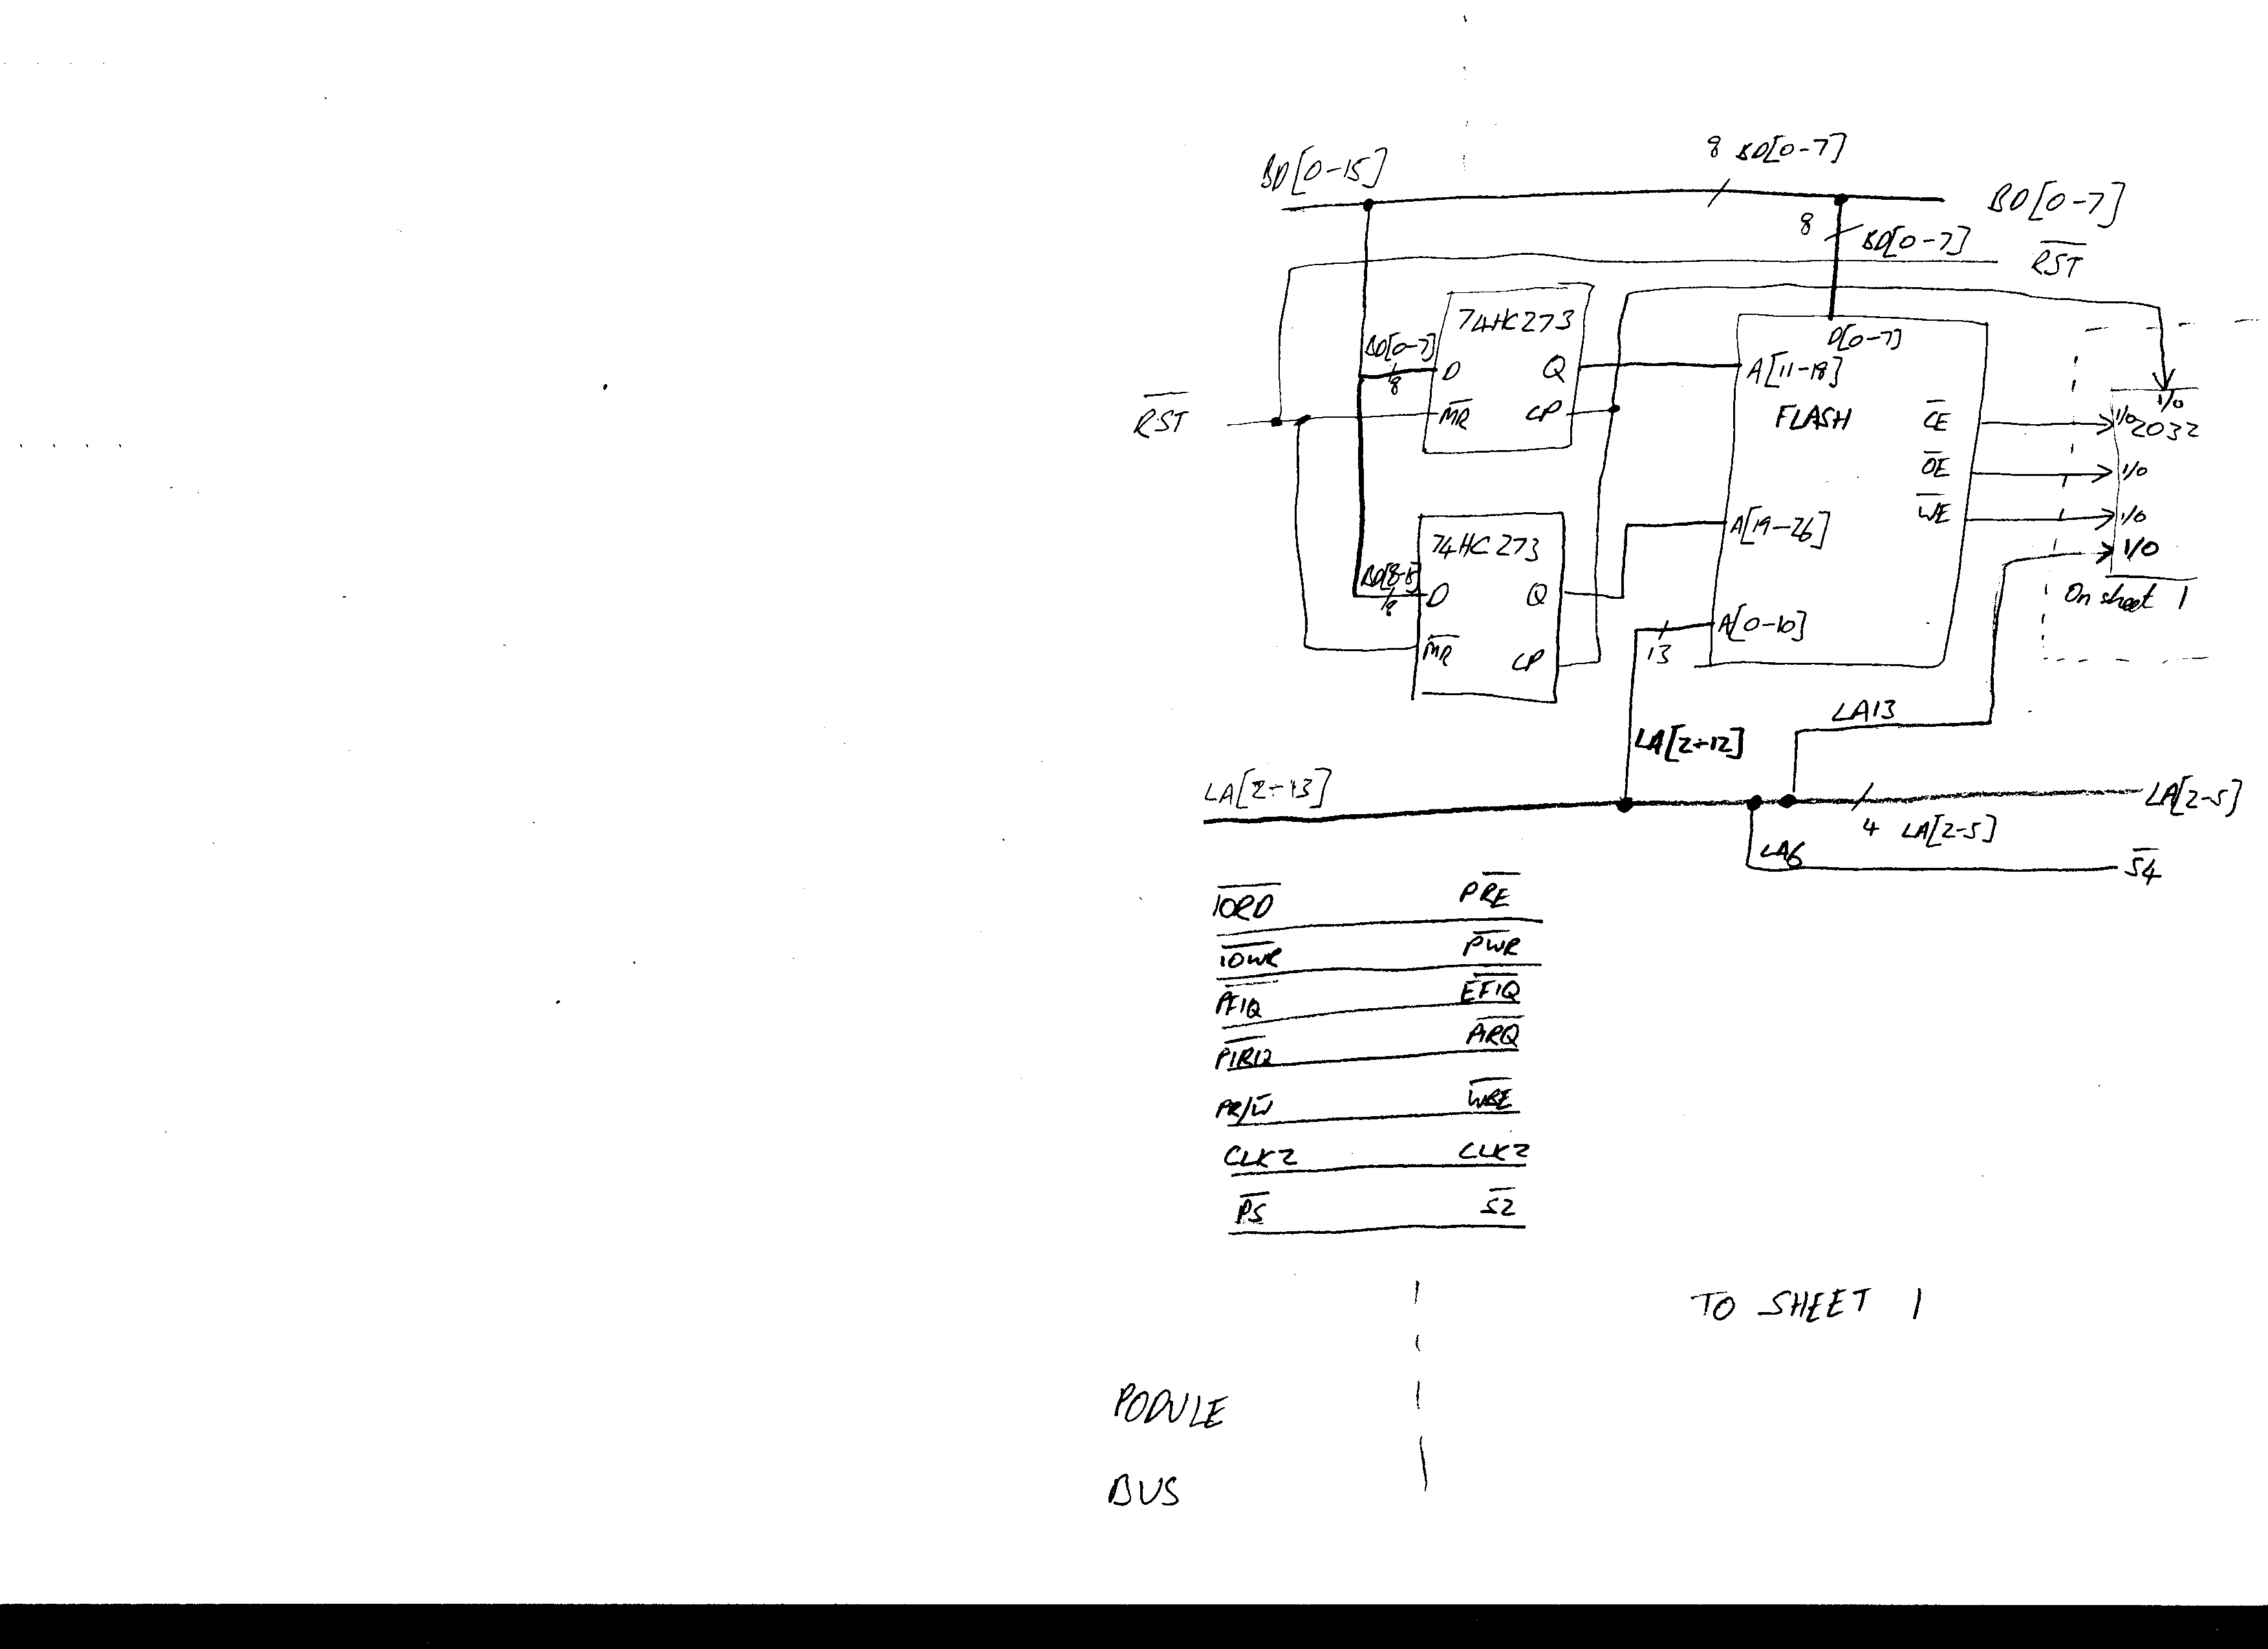 BD[0-15]
8 BD[0-7]
BD[0-7]
8
BD[0-7]
RST
74HC273
BD[0-7]
8
D
Q
MR
CP
RST
D[0-7]
A[11-18]
FLASH
CE
OE
WE
A[19-26]
A[0-10]
I/O
I/O
2032
I/O
I/O
I/O
On sheet 1
74HC273
BD[8-15]
8
D
Q
MR
CP
13
LA[2-12]
LA13
LA[2-13]
LA[2-5]
4 LA[2-5]
LA6
S4
IORD PRE
IOWR PWR
PFIQ EFIQ
PIRQ
PR/W WBE
CLK2 CLK2
PS S2
TO SHEET 1
PODULE
BUS